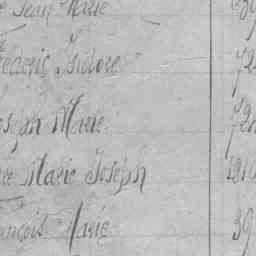 Jean Marie
Frédéric Isidore 72
Joseph Marie 72
Marie Joseph
François Marie 39